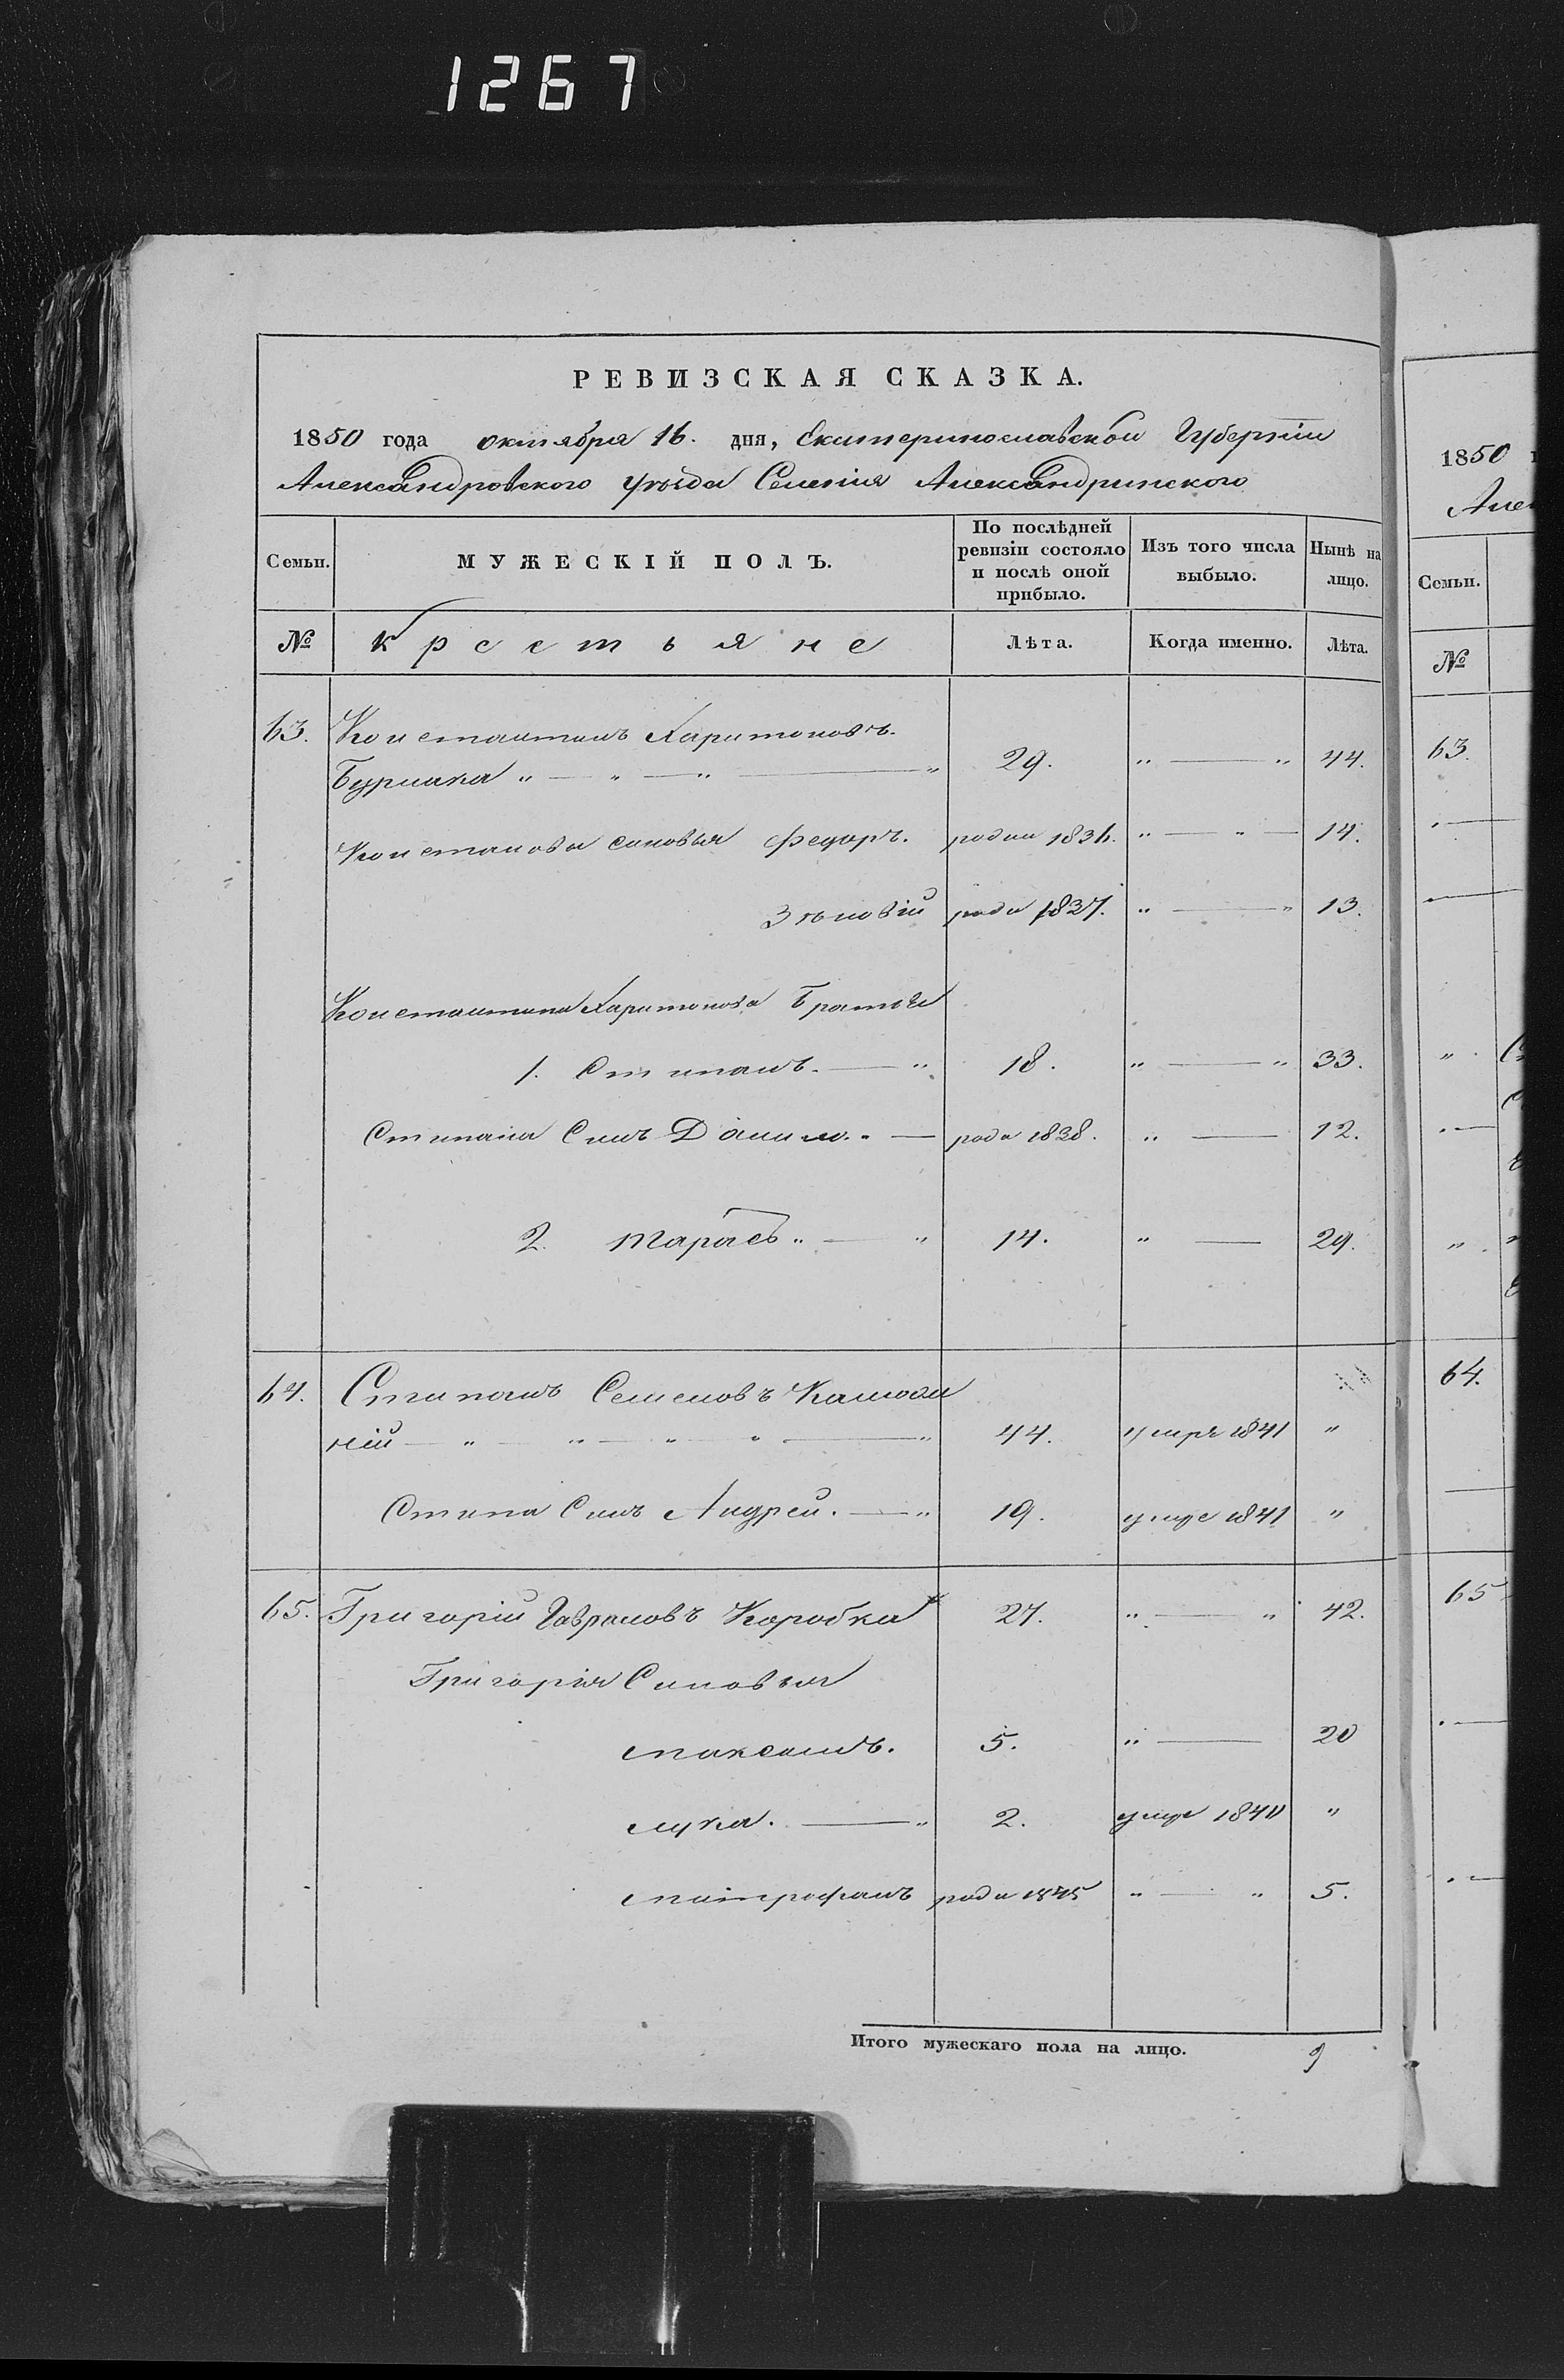 1267
РЕВИЗСКАЯ СКАЗКА.
1850 года октября 16. дня, Екатеринославской Губерніи
Александровского уѣзда Селенія Александринского
Семьи. МУЖЕСКІЙ ПОЛЪ. По послѣдней ревизіи состояло и послѣ оной прибыло. Изъ того числа выбыло. Нынѣ на лицо.
№ крестьяне Лѣта. Когда именно. Лѣта.
63. Константинъ Харитоновъ.
Бурлака „ — „ — „ — „ 29. „ — „ 44.
сыновья Федоръ. родил 1836. „ — „ — 14.
Зѣновій роди 1837. „ — „ 13.
Константина Харитонова Братья
1. Стипанъ. — „ 18. „ — „ 33.
Стипана Сынъ Данило. „ — роди 1838. „ — 12.
2. Тарасъ „ — „ 14. „ — 29.
64. Стипанъ Семеновъ
ній — „ — „ — „ „ — „ 44. умре 1841 „
Стипа Сынъ Андрей. — „ 19. умре 1841 „
65. Григорій Гавриловъ Коробка 27. „ — „ 42.
Григорія Синовья
Максимъ. 5. „ — 20
Лука. — „ 2. умре 1840 „
Митрофанъ роди 1845 „ — „ 5.
Итого мужескаго пола на лицо. 9
1850
Семьи.
№
63.
64.
65